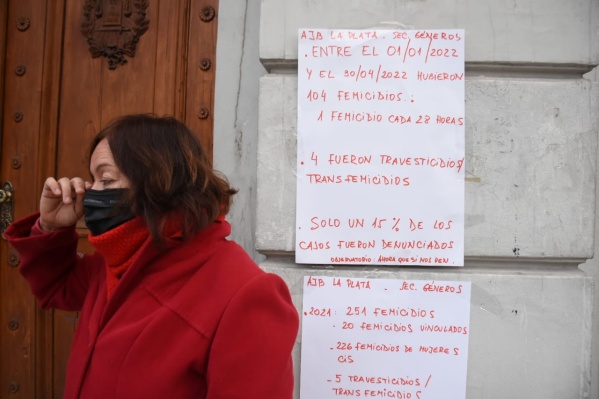 AJB LA PLATA. SEC. GÉNEROS
. ENTRE EL 01/01/2022
Y EL 30/04/2022 HUBIERON
104 FEMICIDIOS.
1 FEMICIDIO CADA 28 HORAS
. 4 FUERON TRAVESTICIDIOS/
TRANSFEMICIDIOS
. SOLO UN 15% DE LOS
CASOS FUERON DENUNCIADOS
OBSERVATORIO: AHORA QUE SI NOS VEN.
AJB LA PLATA - SEC. GÉNEROS
. 2021: 251 FEMICIDIOS
- 20 FEMICIDIOS VINCULADOS
- 226 FEMICIDIOS DE MUJERES
CIS
- 5 TRAVESTICIDIOS/
TRANSFEMICIDIOS